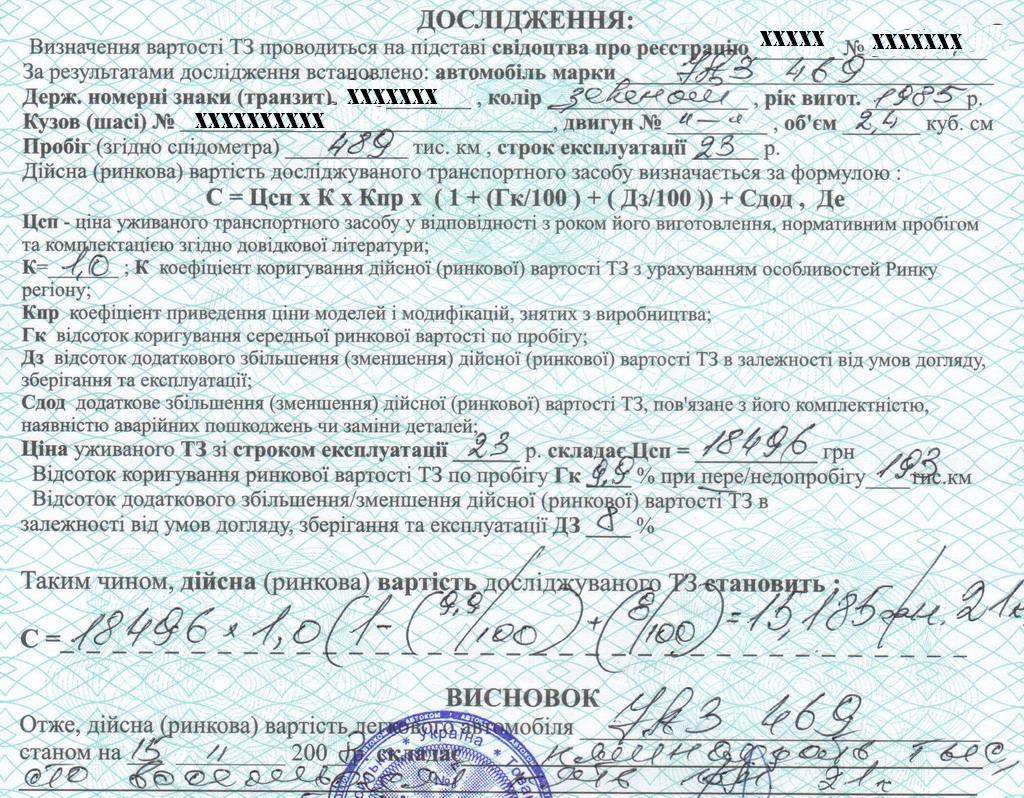 ДОСЛІДЖЕННЯ:
Визначення вартості ТЗ проводиться на підставі свідоцтва про реєстрацію XXXXX № XXXXXXX
За результатами дослідження встановлено: автомобіль марки УАЗ 469
Держ. номерні знаки (транзит). XXXXXXX , колір зелений , рік вигот. 1985 р.
Кузов (шасі) № XXXXXXXXXX , двигун № "—" , об'єм 2,4 куб. см
Пробіг (згідно спідометра) 489 тис. км , строк експлуатації 23 р.
Дійсна (ринкова) вартість досліджуваного транспортного засобу визначається за формулою :
С = Цсп х К х Кпр х ( 1 + (Гк/100 ) + ( Дз/100 )) + Сдод , Де
Цсп - ціна уживаного транспортного засобу у відповідності з роком його виготовлення, нормативним пробігом
та комплектацією згідно довідкової літератури;
К= 1,0 ; К коефіцієнт коригування дійсної (ринкової) вартості ТЗ з урахуванням особливостей Ринку
регіону;
Кпр коефіцієнт приведення ціни моделей і модифікацій, знятих з виробництва;
Гк відсоток коригування середньої ринкової вартості по пробігу;
Дз відсоток додаткового збільшення (зменшення) дійсної (ринкової) вартості ТЗ в залежності від умов догляду,
зберігання та експлуатації;
Сдод додаткове збільшення (зменшення) дійсної (ринкової) вартості ТЗ, пов'язане з його комплектністю,
наявністю аварійних пошкоджень чи заміни деталей;
Ціна уживаного ТЗ зі строком експлуатації 23 р. складає Цсп = 18496 грн
Відсоток коригування ринкової вартості ТЗ по пробігу Гк 9,9 % при пере/недопробігу 193 тис.км
Відсоток додаткового збільшення/зменшення дійсної (ринкової) вартості ТЗ в
залежності від умов догляду, зберігання та експлуатації ДЗ 8 %
Таким чином, дійсна (ринкова) вартість досліджуваного ТЗ становить :
С = 18496 х 1,0 (1 - (9,9/100) + (8/100) = 15,185 грн. 21к
ВИСНОВОК
Отже, дійсна (ринкова) вартість легкового автомобіля УАЗ 469
станом на 15 11 200 р. складає
сто грн 21к
* Україна *